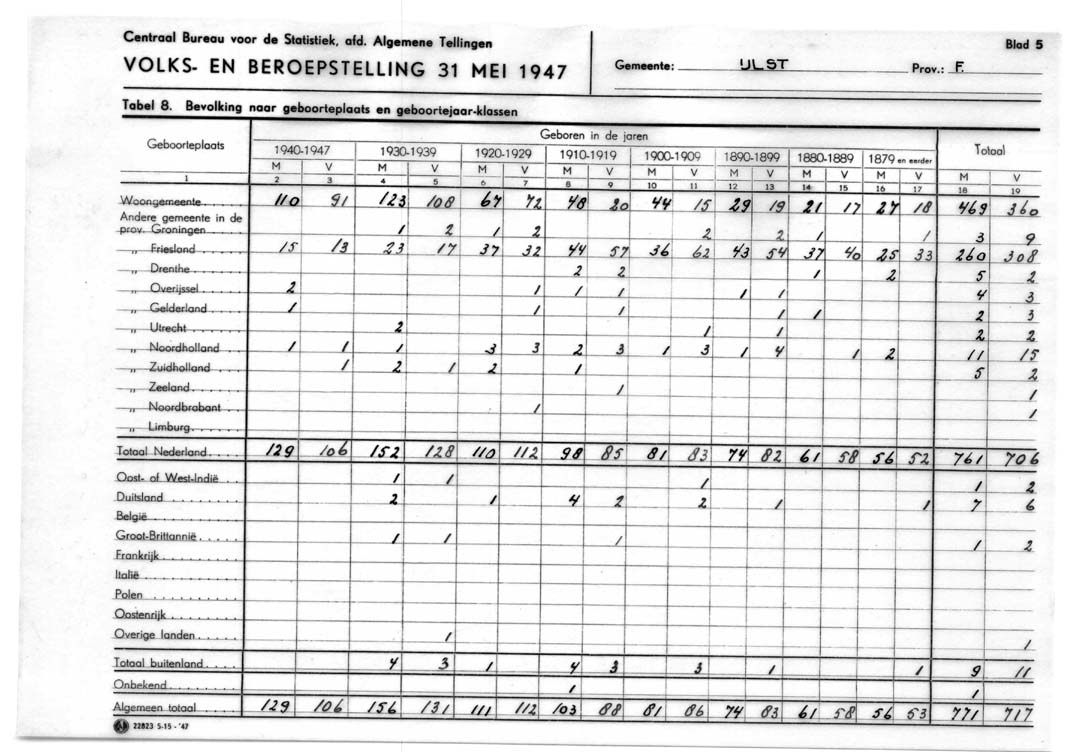 Centraal Bureau voor de Statistiek, afd. Algemene Tellingen
Blad 5
VOLKS- EN BEROEPSTELLING 31 MEI 1947
Gemeente: IJLST Prov.: F.
Tabel 8. Bevolking naar geboorteplaats en geboortejaar-klassen
Geboorteplaats
Geboren in de jaren
Totaal
1940-1947 1930-1939 1920-1929 1910-1919 1900-1909 1890-1899 1880-1889 1879 en eerder
M V M V M V M V M V M V M V M V M V
1 2 3 4 5 6 7 8 9 10 11 12 13 14 15 16 17 18 19
Woongemeente 110 91 123 108 67 72 48 20 44 15 29 19 21 17 27 18 469 360
Andere gemeente in de
prov. Groningen 1 2 1 2 2 2 1 1 3 9
„ Friesland 15 13 23 17 37 32 44 57 36 62 43 54 37 40 25 33 260 308
„ Drenthe 2 2 1 2 5 2
„ Overijssel 2 1 1 1 1 1 4 3
„ Gelderland 1 1 1 1 1 2 3
„ Utrecht 2 1 1 2 2
„ Noordholland 1 1 1 3 3 2 3 1 3 1 4 1 2 11 15
„ Zuidholland 1 2 1 2 1 5 2
„ Zeeland 1 1
„ Noordbrabant 1 1
„ Limburg
Totaal Nederland 129 106 152 128 110 112 98 85 81 83 74 82 61 58 56 52 761 706
Oost- of West-Indië 1 1 1 1 2
Duitsland 2 1 4 2 2 1 1 7 6
België
Groot-Brittannië 1 1 1 1 2
Frankrijk
Italië
Polen
Oostenrijk
Overige landen 1 1
Totaal buitenland 4 3 1 4 3 3 1 1 9 11
Onbekend 1 1
Algemeen totaal 129 106 156 131 111 112 103 88 81 86 74 83 61 58 56 53 771 717
22823 5-15-'47